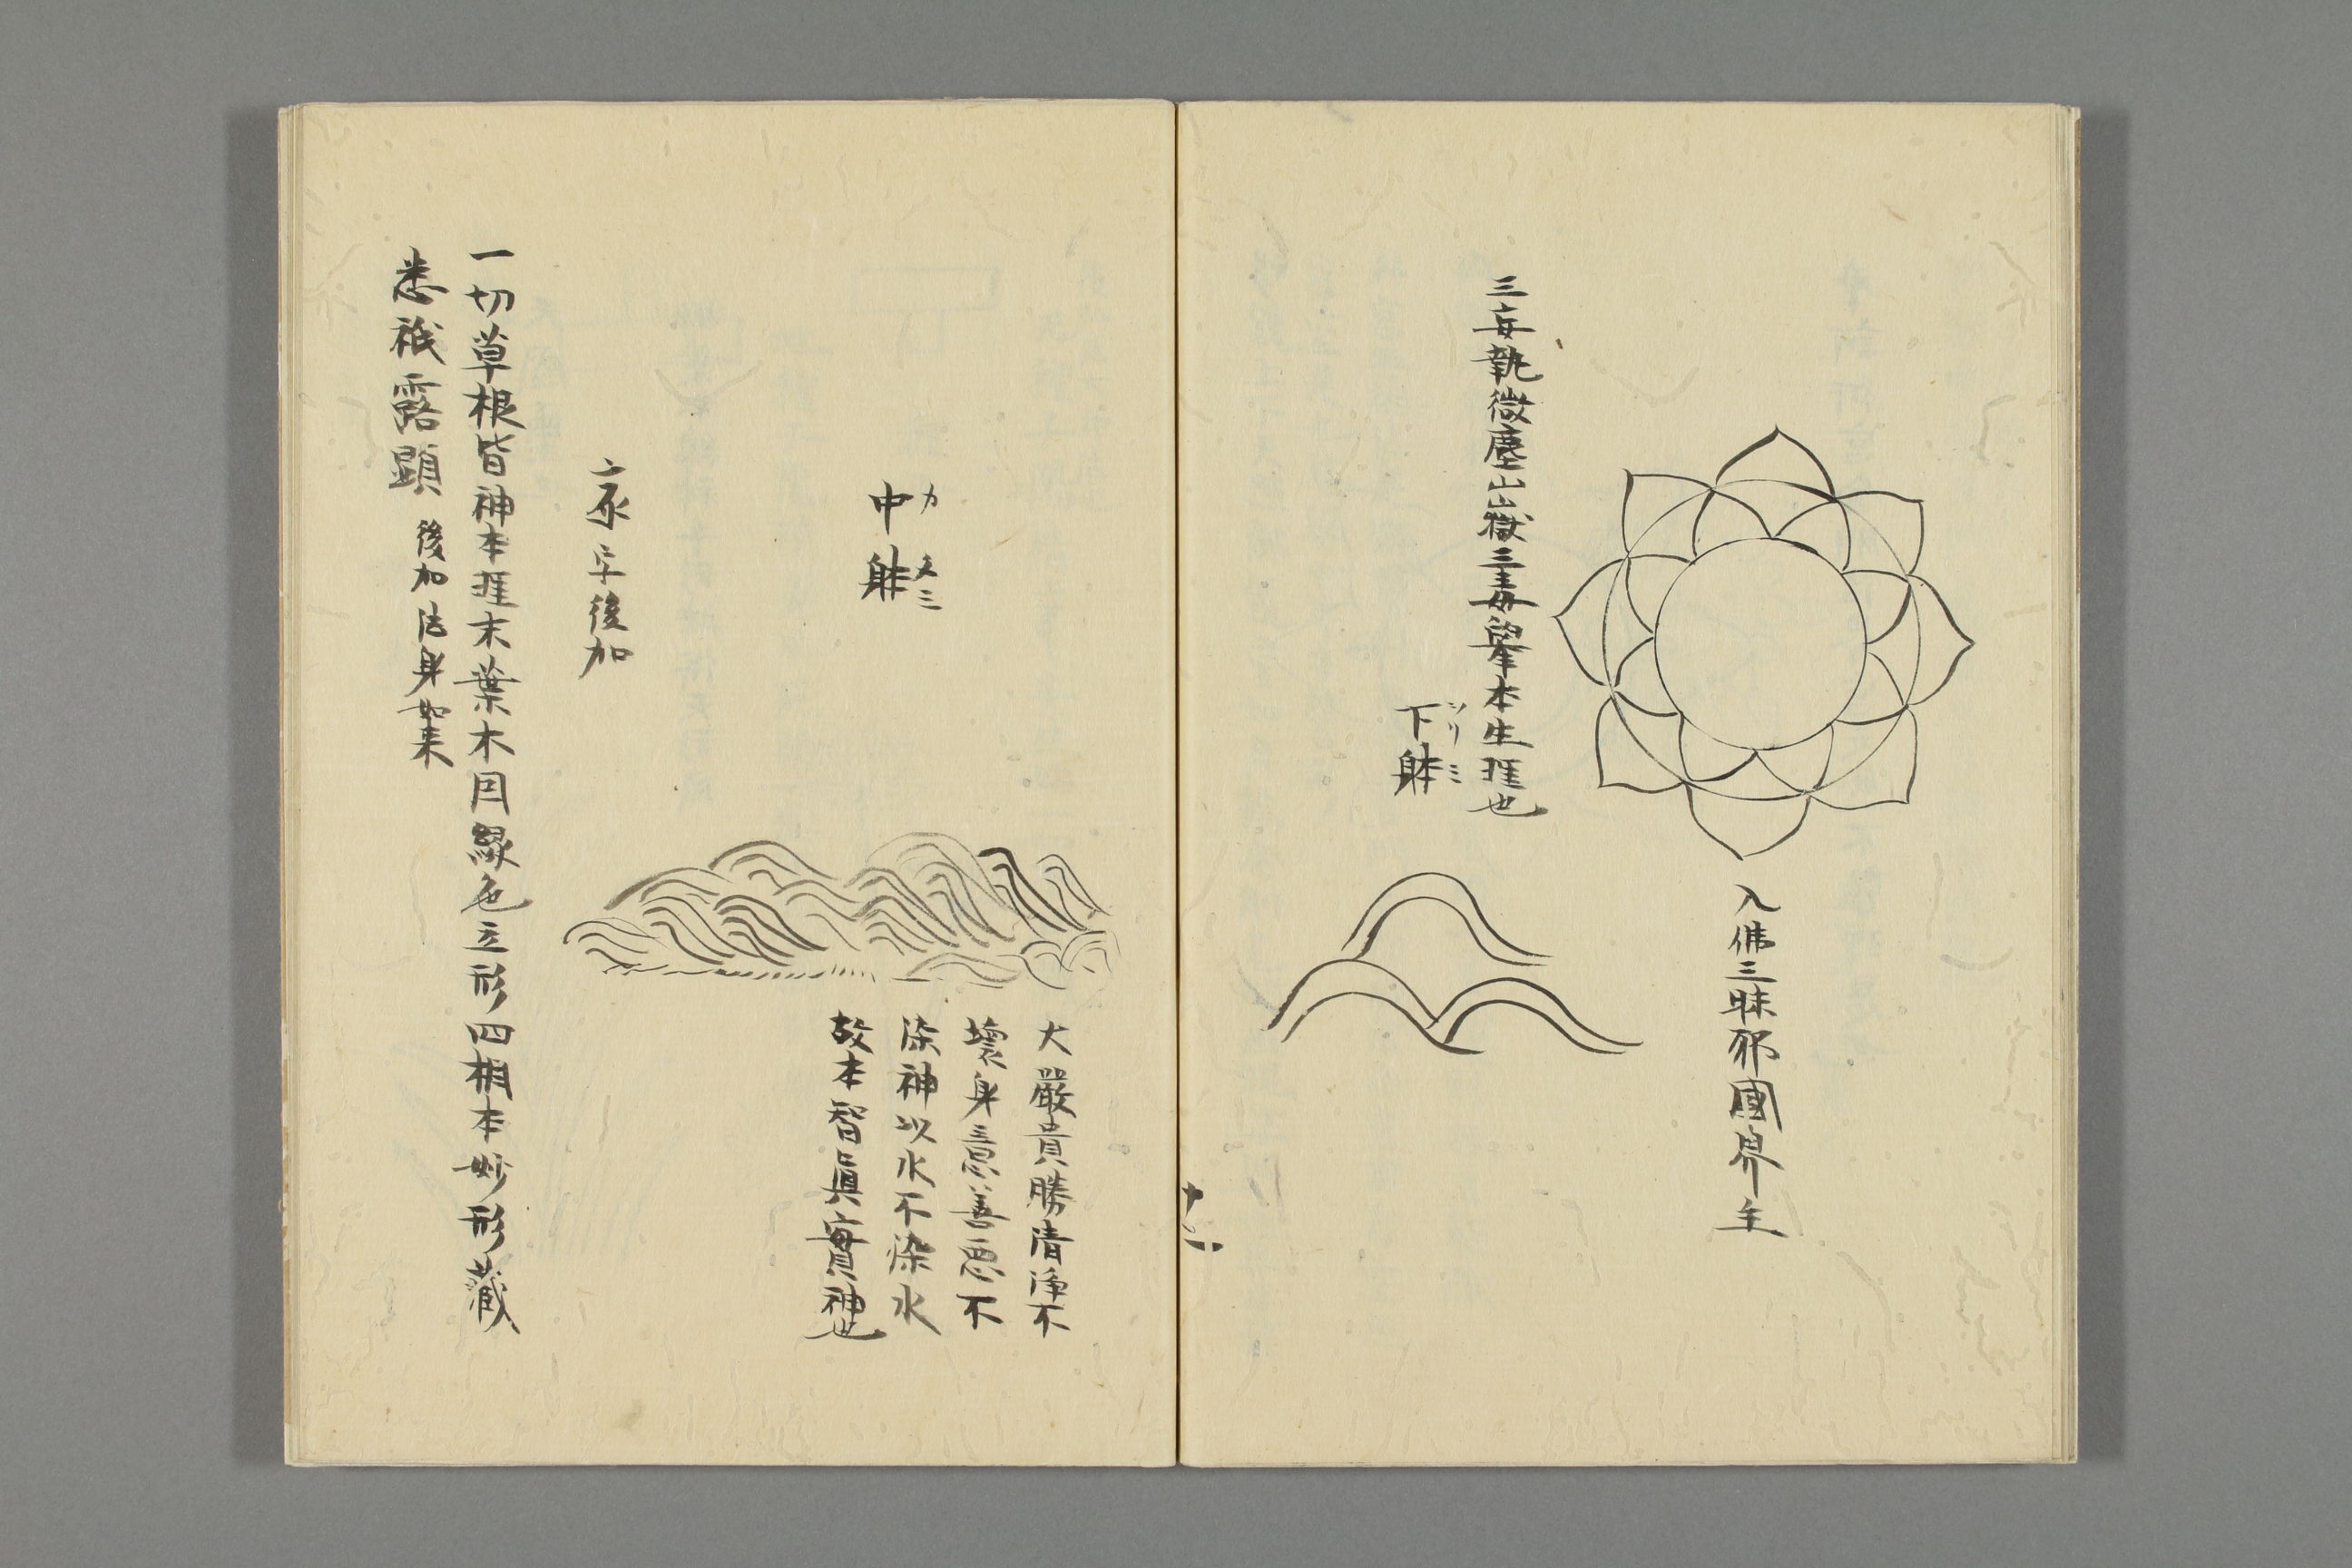 入佛三昧耶國界主
三妄執微塵山嶽三毒擧本生涯也
下躰
ソリ ミ
十二
大嚴貴勝清淨不
壞身意善惡不
染神以水不染水
故本智眞實神也
中躰
カ タミ
字後加
一切草根皆神本涯末葉木因緑色立形四相本妙形藏
悉祇露顕 後加 法身如来